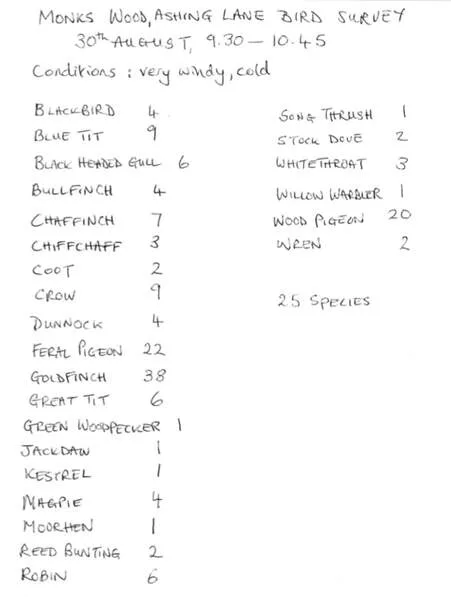 MONKS WOOD, ASHING LANE BIRD SURVEY
30th AUGUST, 9.30 – 10.45
Conditions : very windy, cold
BLACKBIRD 4
BLUE TIT 9
BLACK HEADED GULL 6
BULLFINCH 4
CHAFFINCH 7
CHIFFCHAFF 3
COOT 2
CROW 9
DUNNOCK 4
FERAL PIGEON 22
GOLDFINCH 38
GREAT TIT 6
GREEN WOODPECKER 1
JACKDAW 1
KESTREL 1
MAGPIE 4
MOORHEN 1
REED BUNTING 2
ROBIN 6
SONG THRUSH 1
STOCK DOVE 2
WHITETHROAT 3
WILLOW WARBLER 1
WOOD PIGEON 20
WREN 2
25 SPECIES